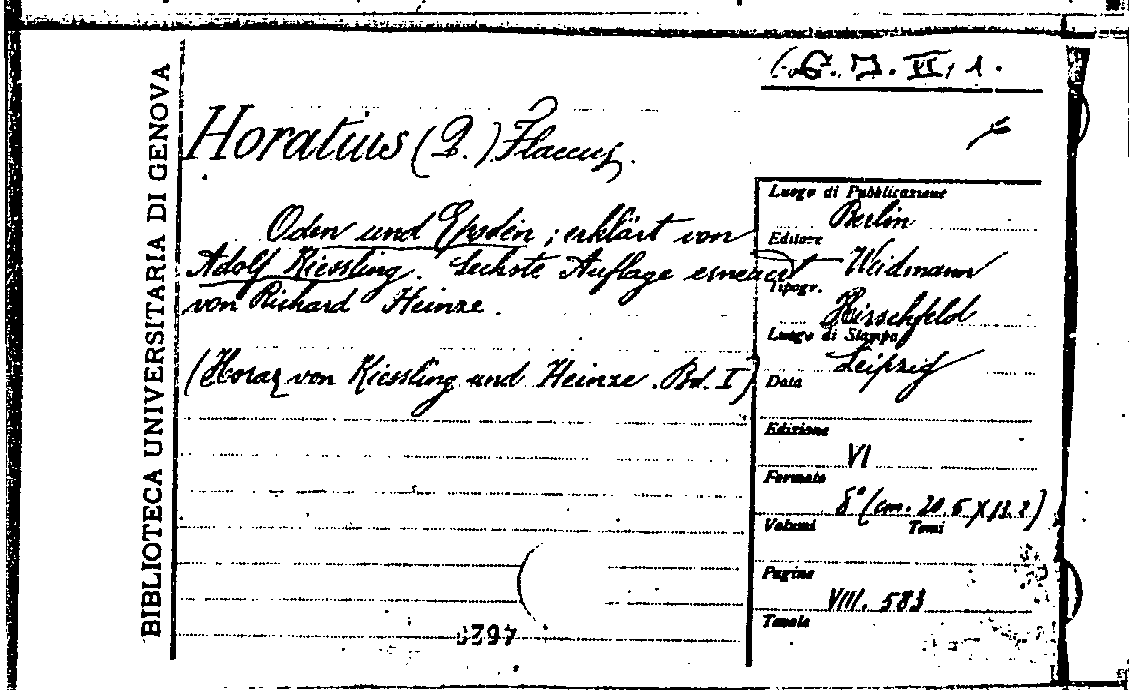 BIBLIOTECA UNIVERSITARIA DI GENOVA
Horatius (Q.) Flaccus.
Oden und Epoden; erklärt von
Adolf Kiessling. Sechste Auflage erneuert
von Richard Heinze.
(Horaz von Kiessling und Heinze. Bd. I)
VI, 1.
Luogo di Pubblicazione
Berlin
Editore
Weidmann
Tipogr.
Hirschfeld
Luogo di Stampa
Leipzig
Data
Edizione
VI
Formato
8° (cm. 20.5 X 13.2)
Volumi Tomi
Pagine
VIII. 583
Tavole